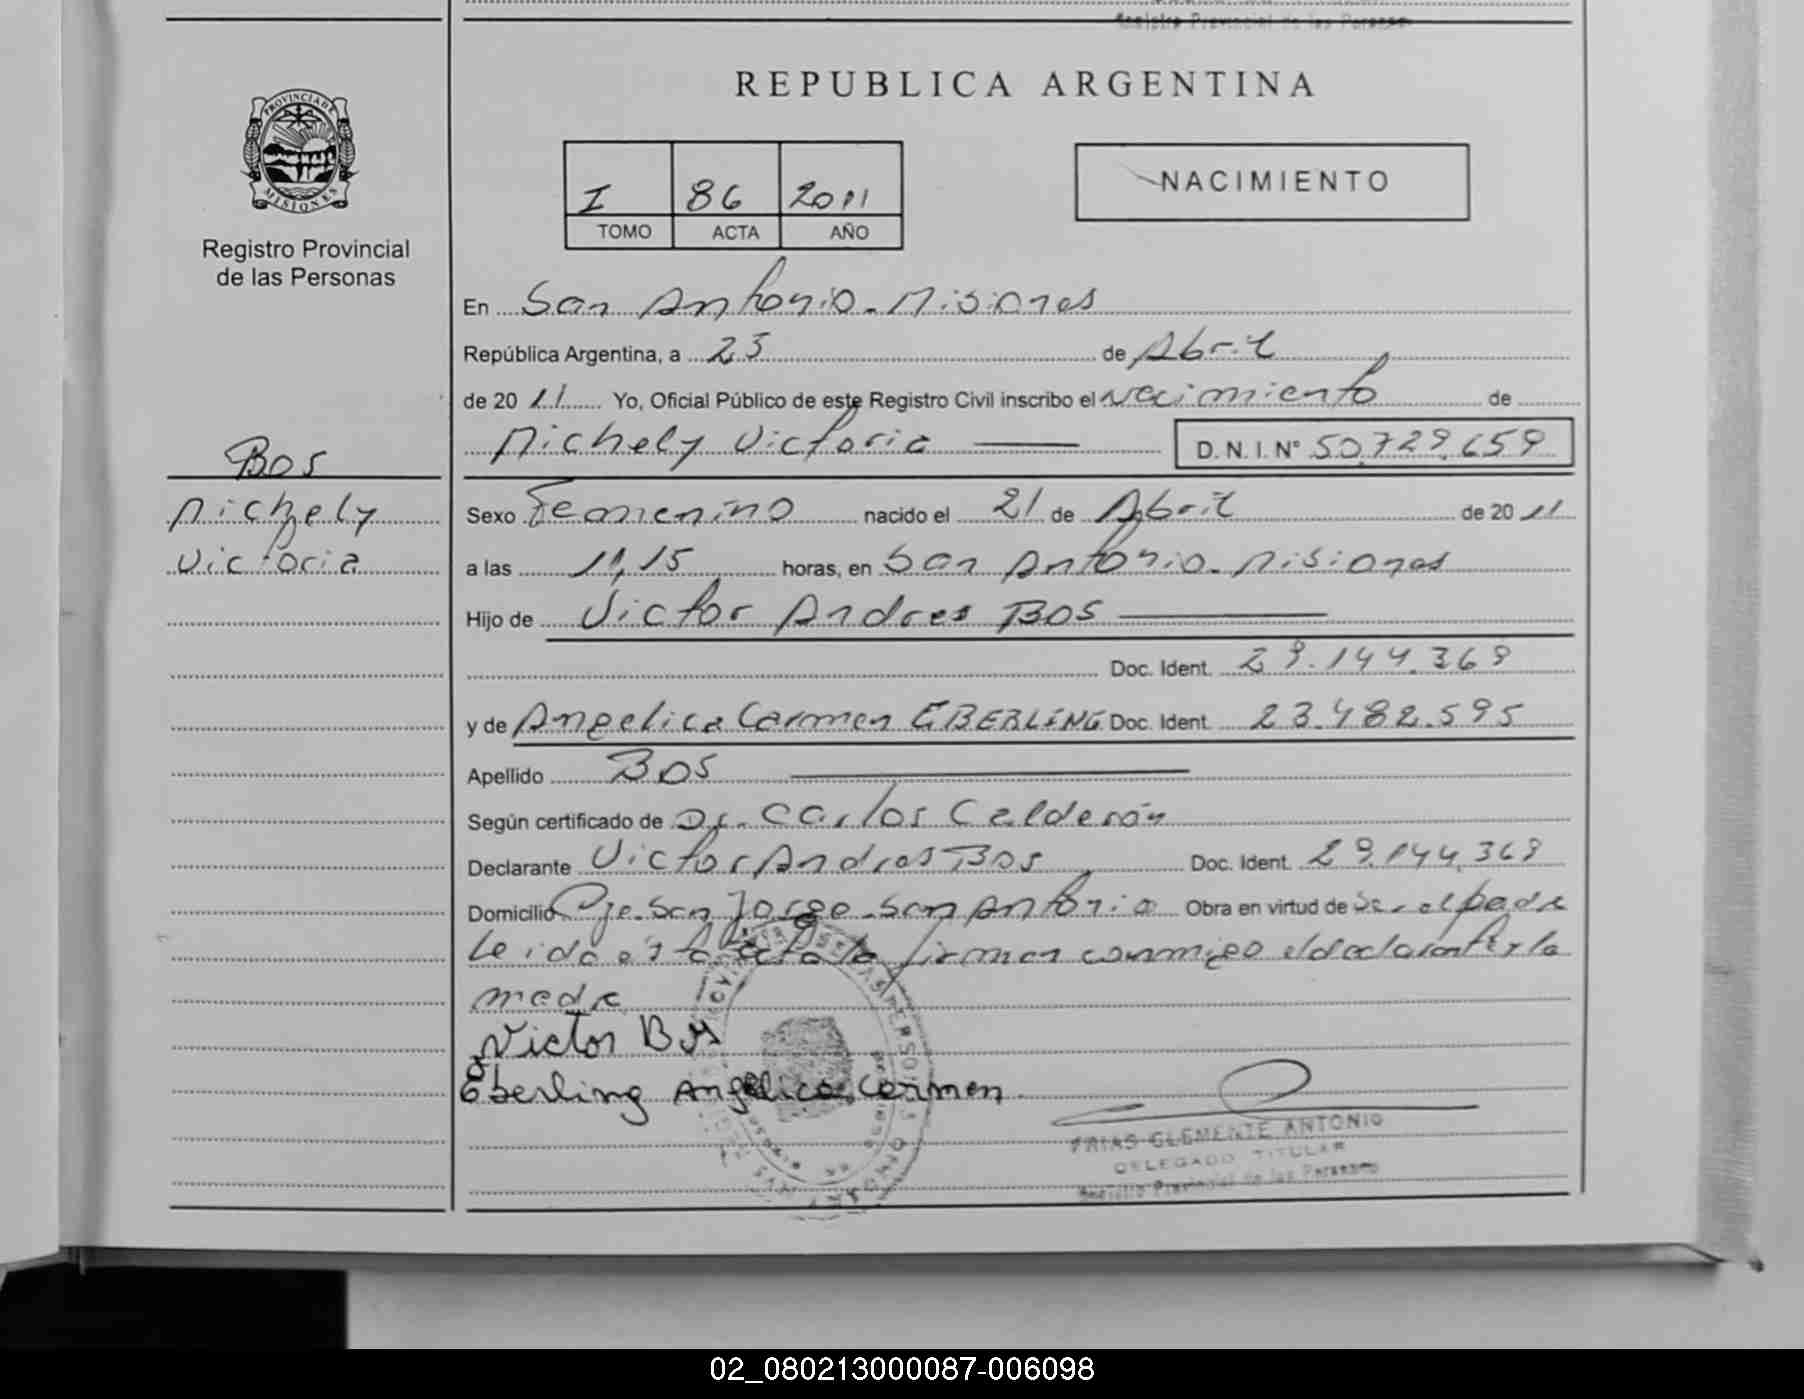 Registro Provincial de las Personas
REPUBLICA ARGENTINA
PROVINCIA DE
MISIONES
Registro Provincial
de las Personas
I 86 2011
TOMO ACTA AÑO
NACIMIENTO
En San Antonio - Misiones
República Argentina, a 25 de Abril
de 2011 Yo, Oficial Público de este Registro Civil inscribo el Nacimiento de
Michely Victoria D.N.I. Nº 50.729.659
BOS
Michely
Victoria
Sexo Femenino nacido el 21 de Abril de 2011
a las 11,15 horas, en San Antonio - Misiones
Hijo de Victor Andres BOS
Doc. Ident. 29.144.369
y de Angelica Carmen EBERLING Doc. Ident. 23.482.595
Apellido BOS
Según certificado de Dr. Carlos Calderón
Declarante Victor Andres BOS Doc. Ident. 29.144.369
Domicilio Pje. San Jorge - San Antonio Obra en virtud de Ser el padre
Leida esta acta la firman conmigo el declarante y la
madre
Victor Bos
Eberling Angelica Carmen
FRIAS CLEMENTE ANTONIO
DELEGADO TITULAR
Registro Provincial de las Personas
02_080213000087-006098